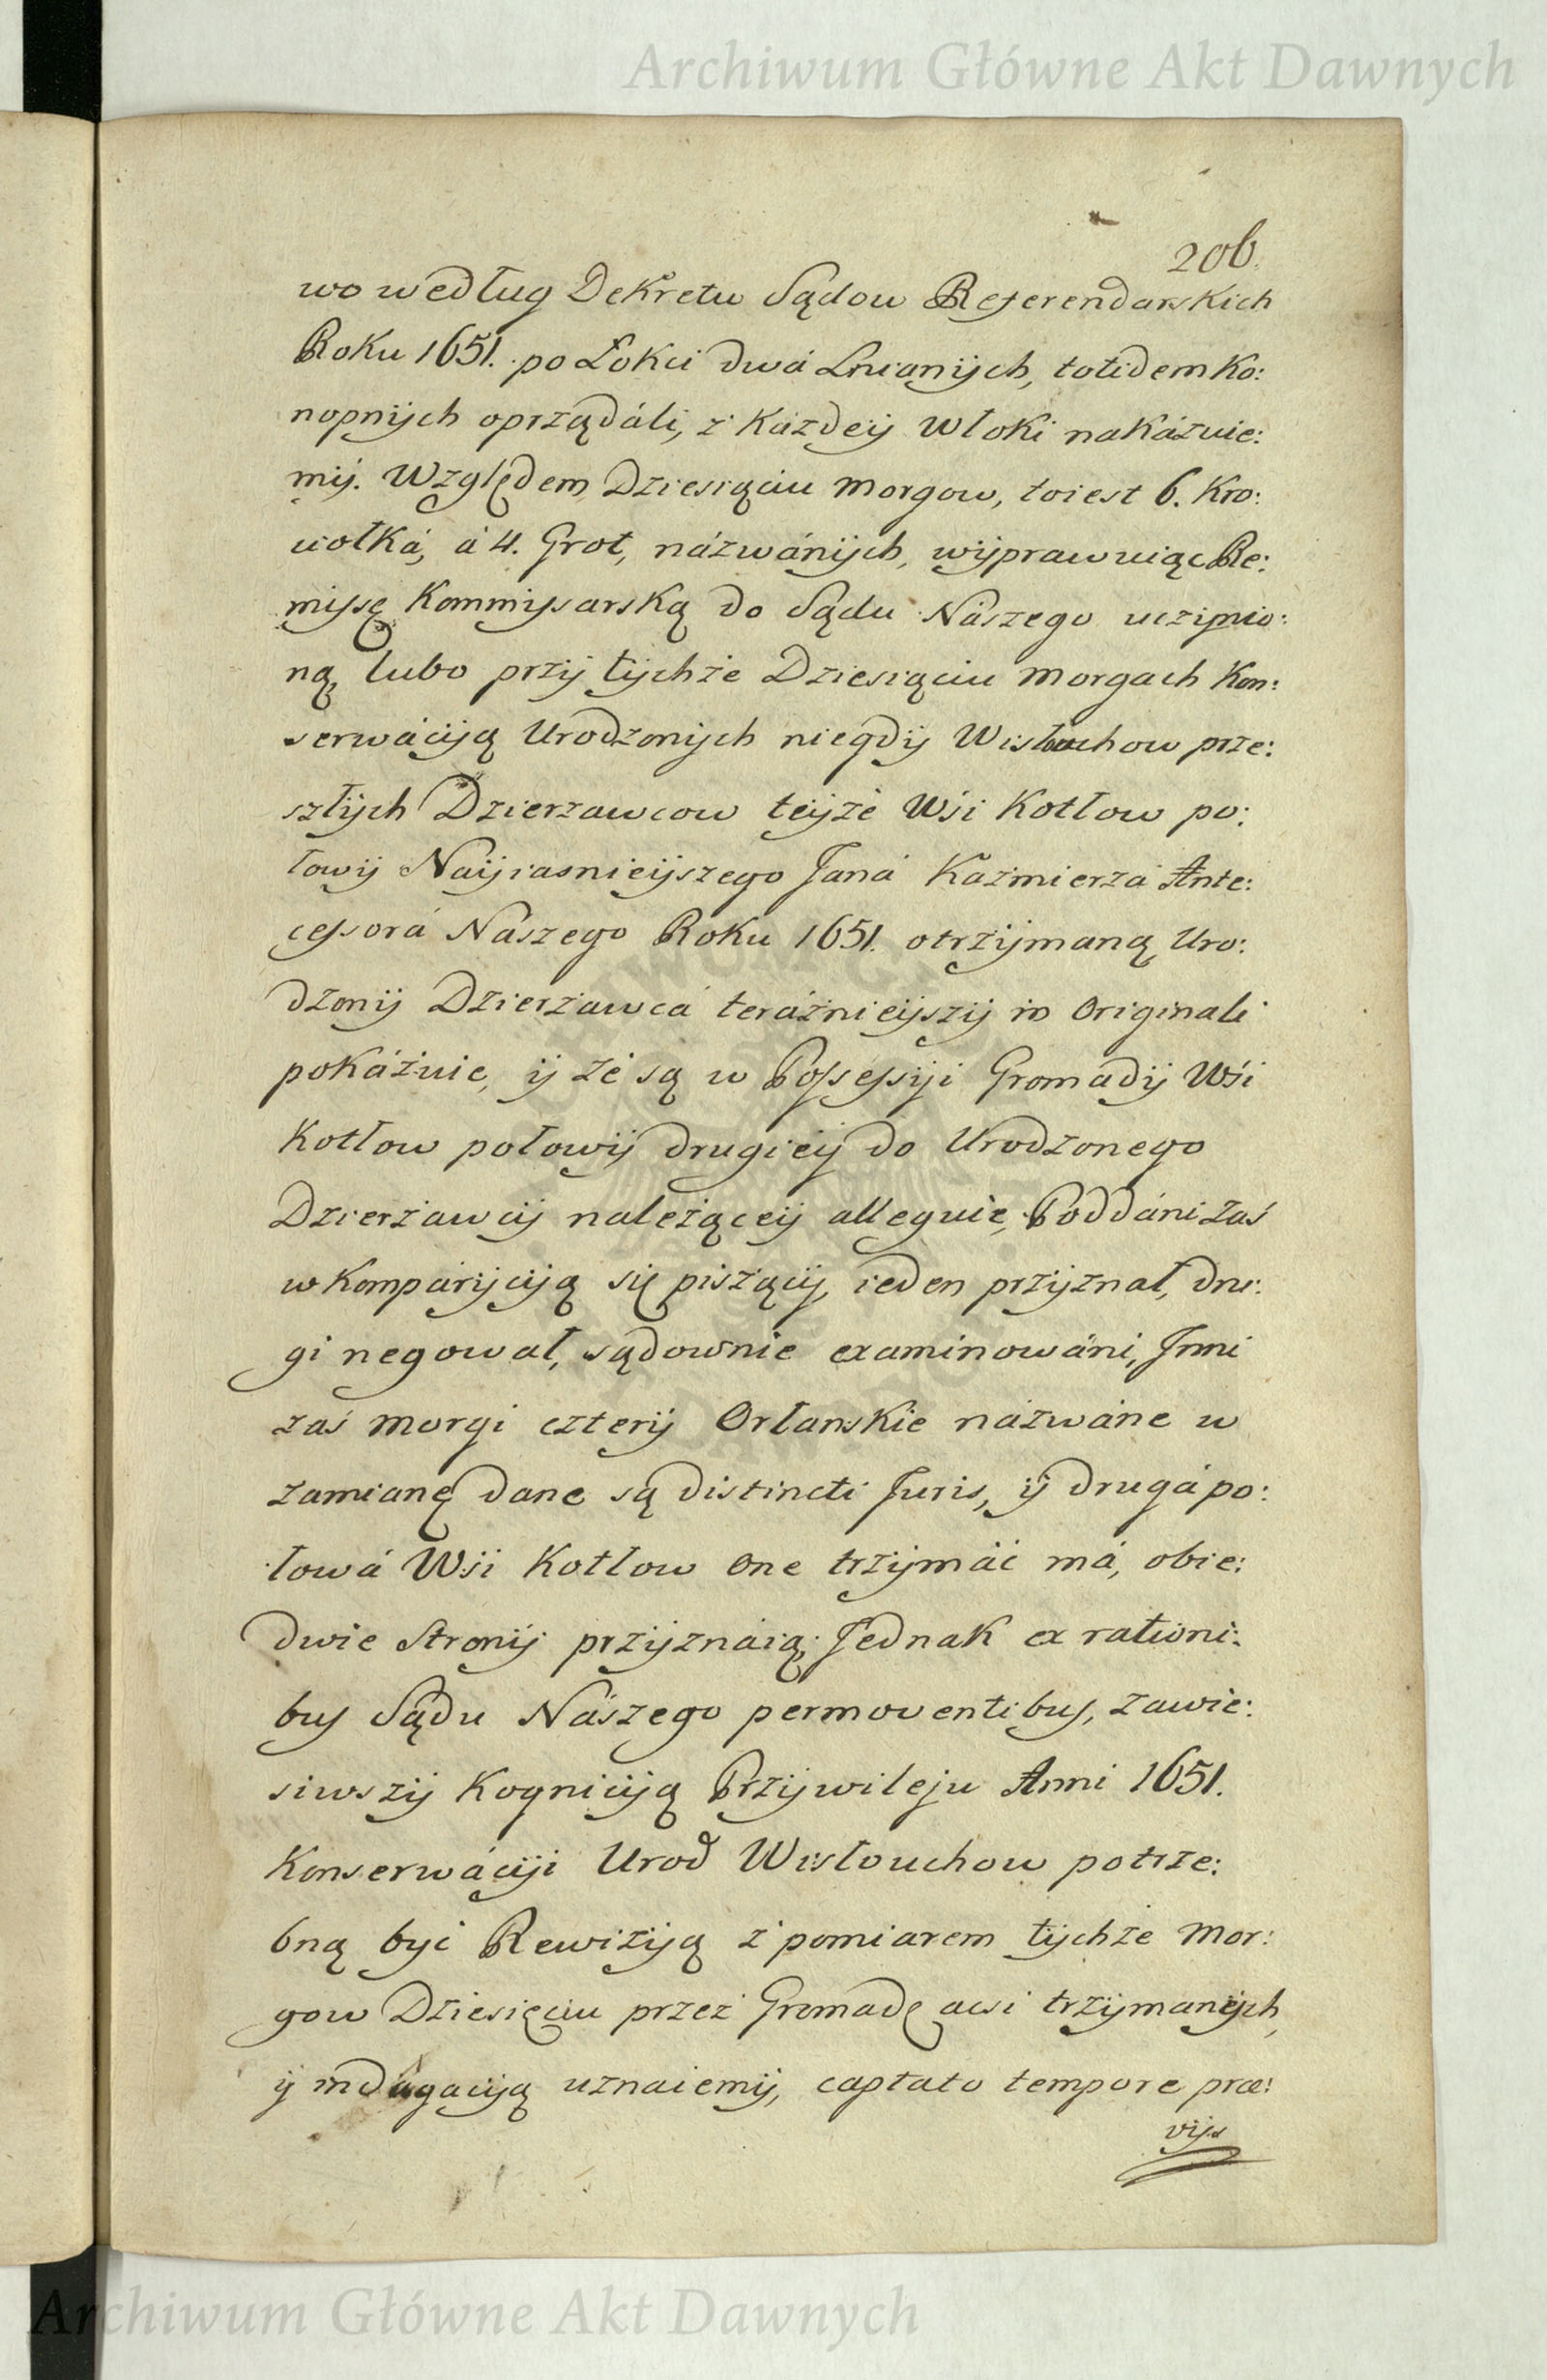 Archiwum Główne Akt Dawnych
206.
wo według Dekretu Sądow Referendarskich
Roku 1651. po Łokci dwá Lnianijch, totidem ko:
nopnijch oprządáli, z káżdeij Włoki nakázuie:
mij. Względem Dziesiąciu morgow, toiest 6. Kro:
wołká, á 4. Grot, názwánijch, wijprawuiąc Re:
missę Kommissarską do Sądu Nászego uczijnio:
ną, lubo przij tijchże Dziesiąciu morgach kon:
serwáciją Urodzonijch niegdij Wisłouchow prze:
szłijch Dzierzawcow teijże Wśi Kotłow po:
łowij Naijiasnieijszego Janá Kaźmierzá Ante:
cessorá Nászego Roku 1651. otrzijmaną Uro:
dzonij Dzierżawcá teráźnieijszij in Originali
pokázuie, ij że są w Possessiji Gromádij Wśi
Kotłow połowij drugieij do Urodzonego
Dzierżawcij należąceij alleguie, Poddáni zaś
w Kompáriciją się piszącij, ieden przijznał, dru:
gi negował, sądownie examinowáni, Inni
zaś morgi czterij Orłanskie názwáne w
zamianę dane są distincti Juris, ij drugá po:
łowá Wśi Kotłow one trzijmáć má, obie:
dwie Stronij przijznáią. Jednak ex rationi:
bus Sądu Nászego permoventibus, zawie:
siwszij Kogniciją Przijwileju Anni 1651.
Konserwáciji Urod Wisłouchow potrze:
bną być Rewiziją z pomiarem tijchże Mor:
gow Dziesięciu przez Gromadę acsi trzijmanijch,
ij indagaciją uznaiemij, captato tempore præ:
vijs
Archiwum Główne Akt Dawnych